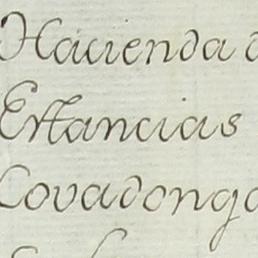 Hacienda d
Estancias
Covadonga